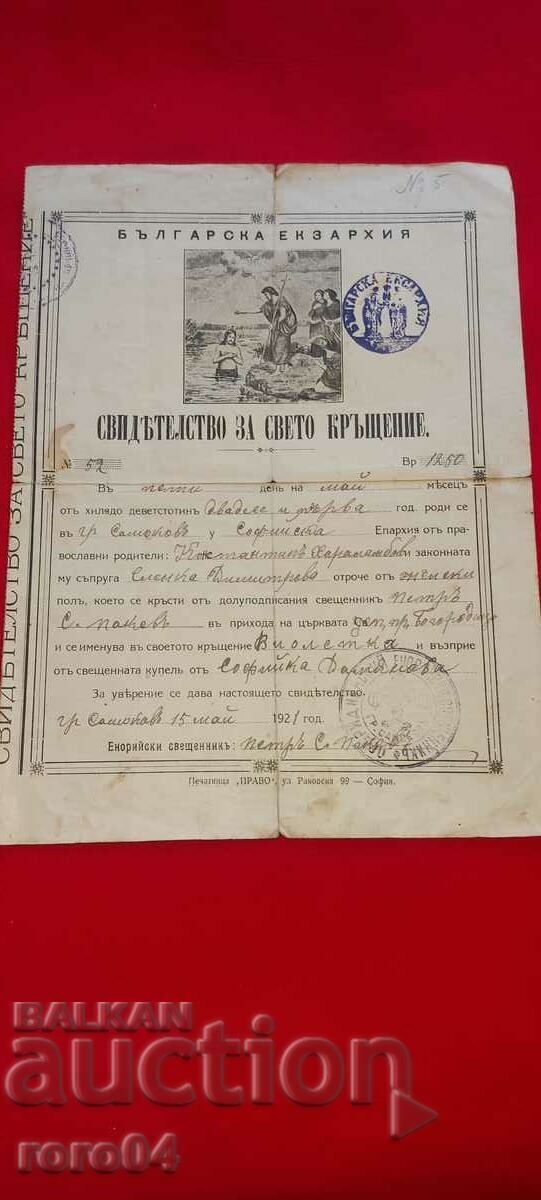 № 5
БЪЛГАРСКА ЕКЗАРХИЯ
БЪЛГАРСКА ЕКСАРХИЯ
СВИДѢТЕЛСТВО ЗА СВЕТО КРЪЩЕНИЕ.
№ 52 Вр 1250
Въ пети день на май мѣсецъ
отъ хилядо деветстотинъ двадесе и първа год. роди се
въ гр Самоковъ у Софийска Епархия отъ пра-
вославни родители: Константинъ Хараламбови законната
му съпруга Сленка Димитрова отроче отъ женски
полъ, което се кръсти отъ долуподписания свещенникъ петръ
С. въ прихода на църквата
и се именува въ своетото кръщение Виолетка и възприе
отъ свещенната купель отъ Софийка
За уверение се дава настоящето свидѣтелство.
гр Самоковъ 15 май 1921 год.
Енорийски свещенникъ: петръ С.
Печатница „ПРАВО", ул. Раковска 99 — София.
СВИДѢТЕЛСТВО ЗА СВЕТО КРЪЩЕНИЕ
BALKAN
auction
roro04